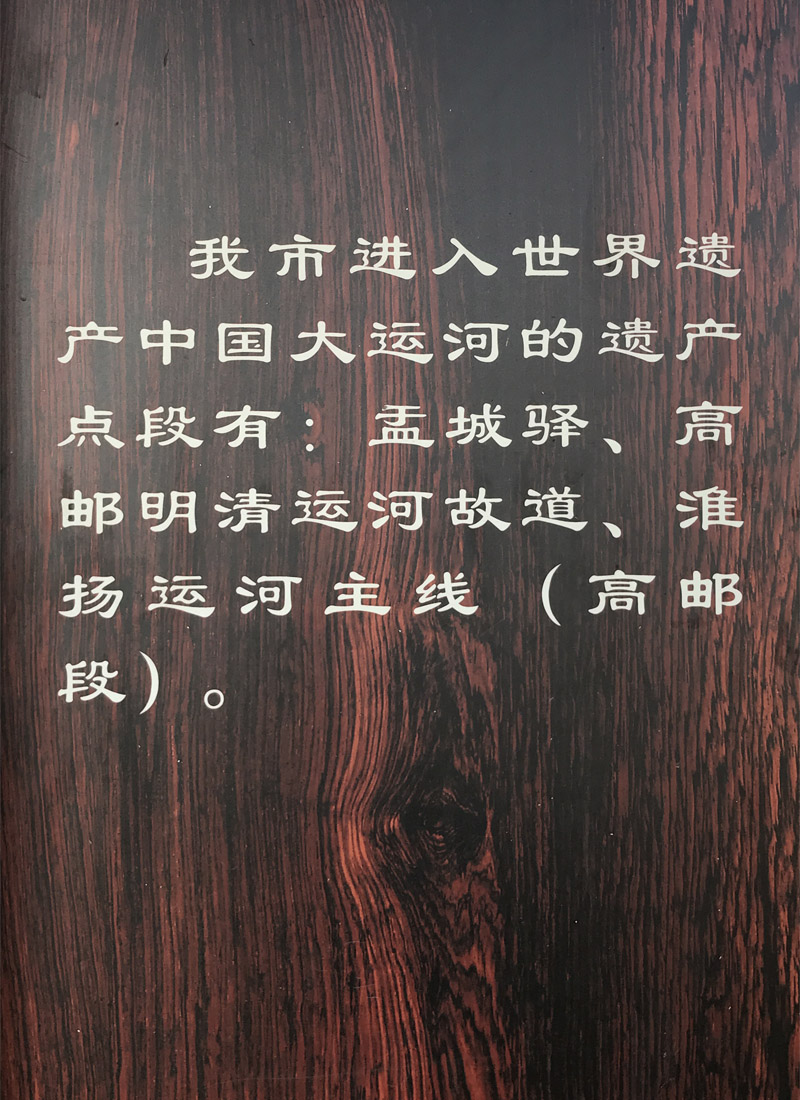 我市进入世界遗
产中国大运河的遗产
点段有：盂城驿、高
邮明清运河故道、淮
扬运河主线（高邮
段）。